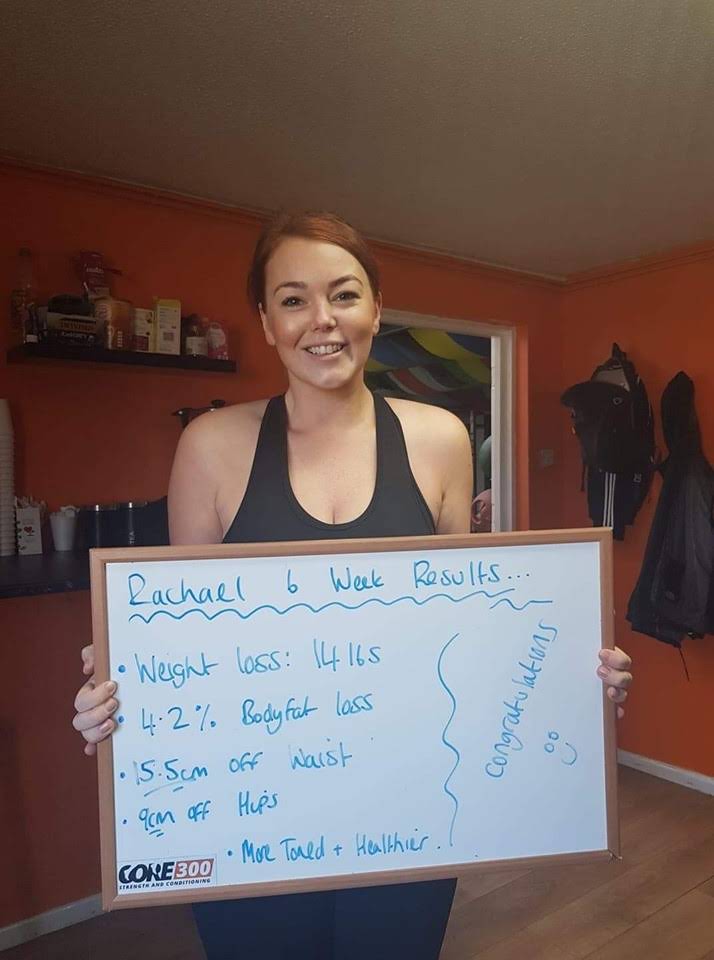 Rachael 6 Week Results...
• Weight loss: 14 lbs
• 4.2% Bodyfat loss
• 15.5cm off Waist
• 9cm off Hips
• More Toned + Healthier.
Congratulations
CORE300
STRENGTH AND CONDITIONING